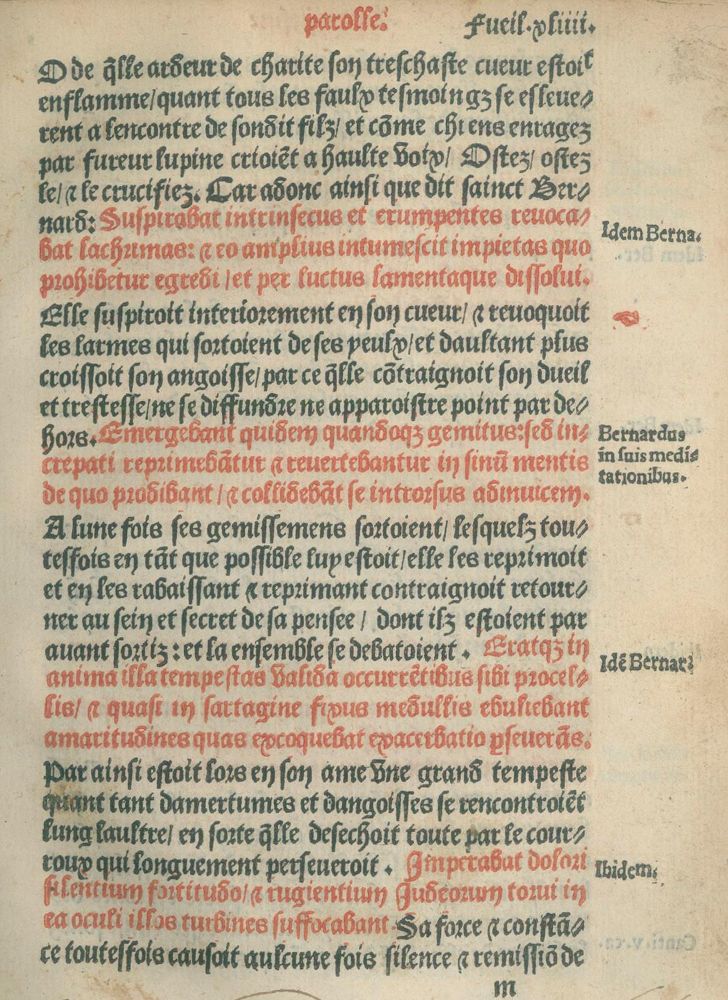 parolle. Fueil.xliiii.
O de q̃lle ardeur de charite son treschaste cueur estoit
enflamme/quant tous les faulx tesmoingz se esleue⸗
rent a lencontre de sondit filz/ et cõme chiens enragez
par fureur lupine crioiẽt a haulte voix/ Ostez/ ostez
le/ ⁊ le crucifiez. Car adonc ainsi que dit sainct Ber⸗
nard: Suspirabat intrinsecus et erumpentes reuoca⸗
bat lachrimas: ⁊ eo amplius intumescit impietas quo
prohibetur egredi/et per luctus lamentaque dissolui.
Idem Berna.
Elle suspiroit interiorement en son cueur/ ⁊ reuoquoit
les larmes qui sortoient de ses yeulx/et daultant plus
croissoit son angoisse/par ce q̃lle cõtraignoit son dueil
et trestesse/ne se diffundre ne apparoistre point par de⸗
hors. Emergebant quidem quandoqȝ gemitus:sed in⸗
crepati reprimebãtur ⁊ reuertebantur in sinũ mentis
de quo prodibant/ ⁊ collidebãt se introrsus adinuicem.
Bernardus
in suis medi⸗
tationibus.
A lune fois ses gemissemens sortoient/ lesquelz tou⸗
tesfois en tãt que possible luy estoit/elle les reprimoit
et en les rabaissant ⁊ reprimant contraignoit retour⸗
ner au sein et secret de sa pensee / dont ilz estoient par
auant sortiz: et la ensemble se debatoient . Eratqȝ in
anima illa tempestas valida occurrẽtibus sibi procel⸗
lis/ ⁊ quasi in sartagine fixus medullis ebuliebant
amaritudines quas excoquebat exacerbatio ꝑseuerãs.
Idẽ Bernar.
Par ainsi estoit lors en son ame vne grand tempeste
quant tant damertumes et dangoisses se rencontroiẽt
lung laultre/ en sorte q̃lle desechoit toute par le cour⸗
roux qui longuement perseueroit . Imperabat dolori
silentium fortitudo/ ⁊ rugientium Judeorum torui in
ea oculi illos turbines suffocabant. Sa force ⁊ constã⸗
ce toutesfois causoit aulcune fois silence ⁊ remissiõ de
Ibidem.
m